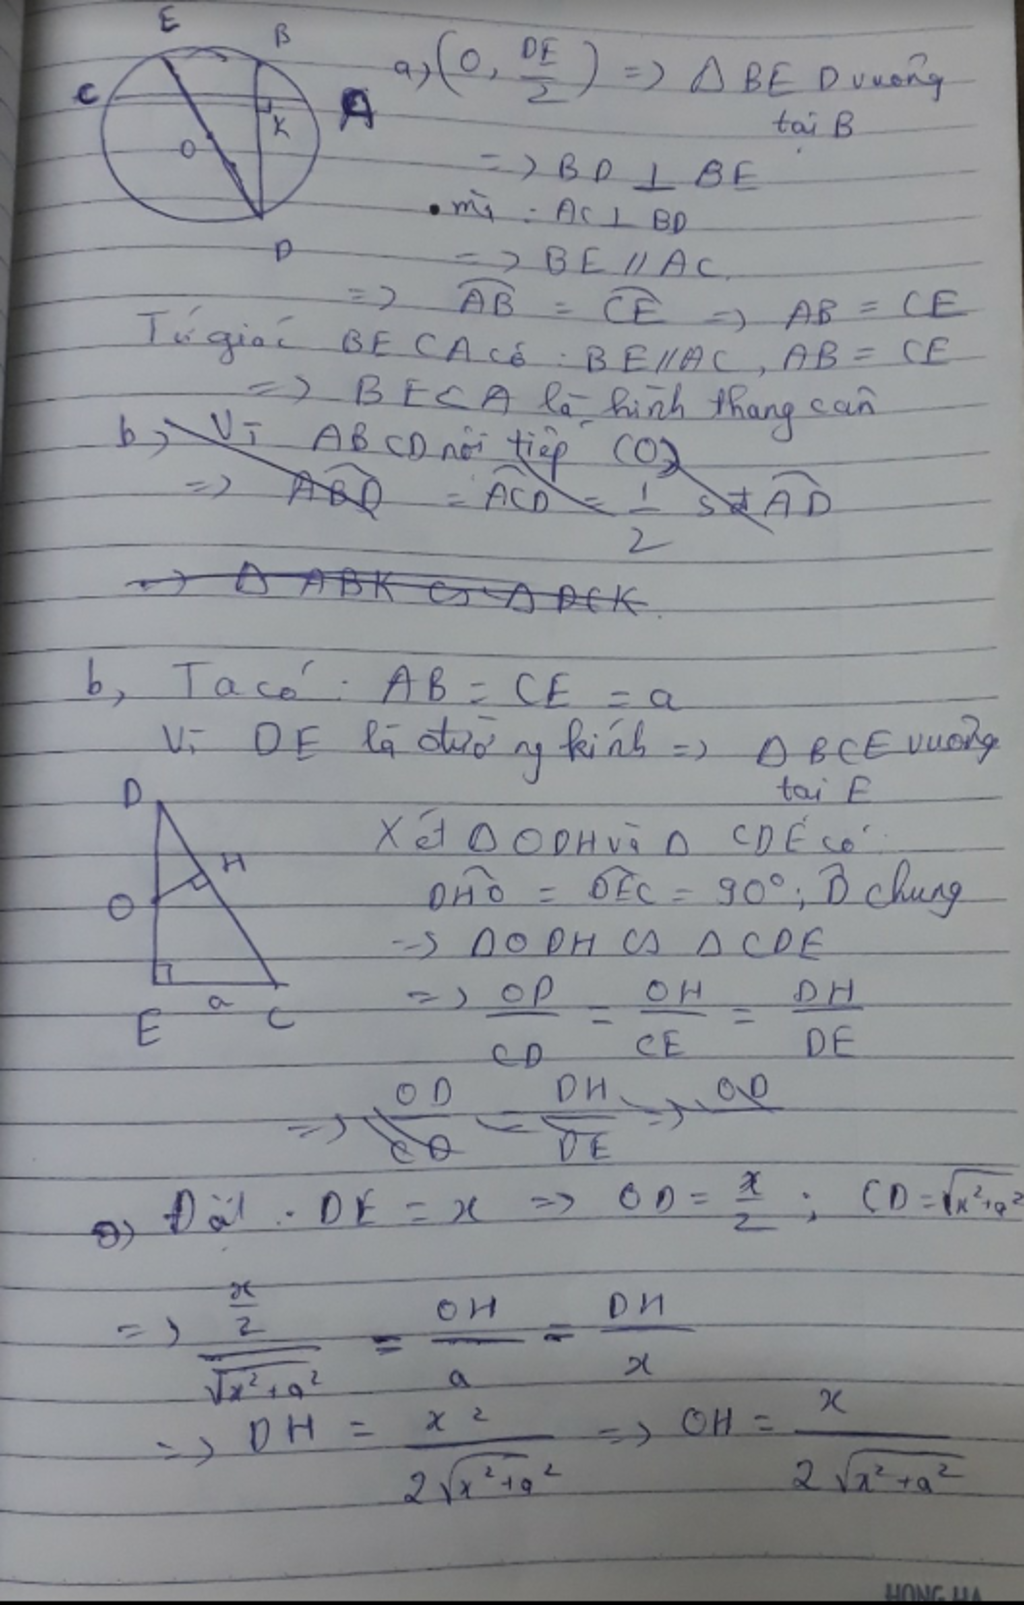 E B
C A
K
O
D
a, (O, DE/2) => Δ BED vuông
tại B
=> BD ⊥ BE
• mà : AC ⊥ BD
=> BE // AC.
=> AB = CE => AB = CE
Tứ giác BECA có : BE // AC, AB = CE
=> BECA là hình thang cân
b, Vì ABCD nội tiếp (O)
=> ABD = ACD = 1/2 sđ AD
=> Δ ABK ∽ Δ DCK.
b, Ta có : AB = CE = a
Vì DE là đường kính => Δ BCE vuông
tại E
D
H
O
E a C
Xét Δ ODH và Δ CDE có
DHO = DEC = 90° ; D chung
=> Δ ODH ∽ Δ CDE
=> OD/CD = OH/CE = DH/DE
=> OD/CD = DH/DE => OD
Đặt : DE = x => OD = x/2 ; CD = √x²+a²
=> x/2/√x²+a² = OH/a = DH/x
=> DH = x²/2√x²+a² => OH = x/2√x²+a²
HONG HA